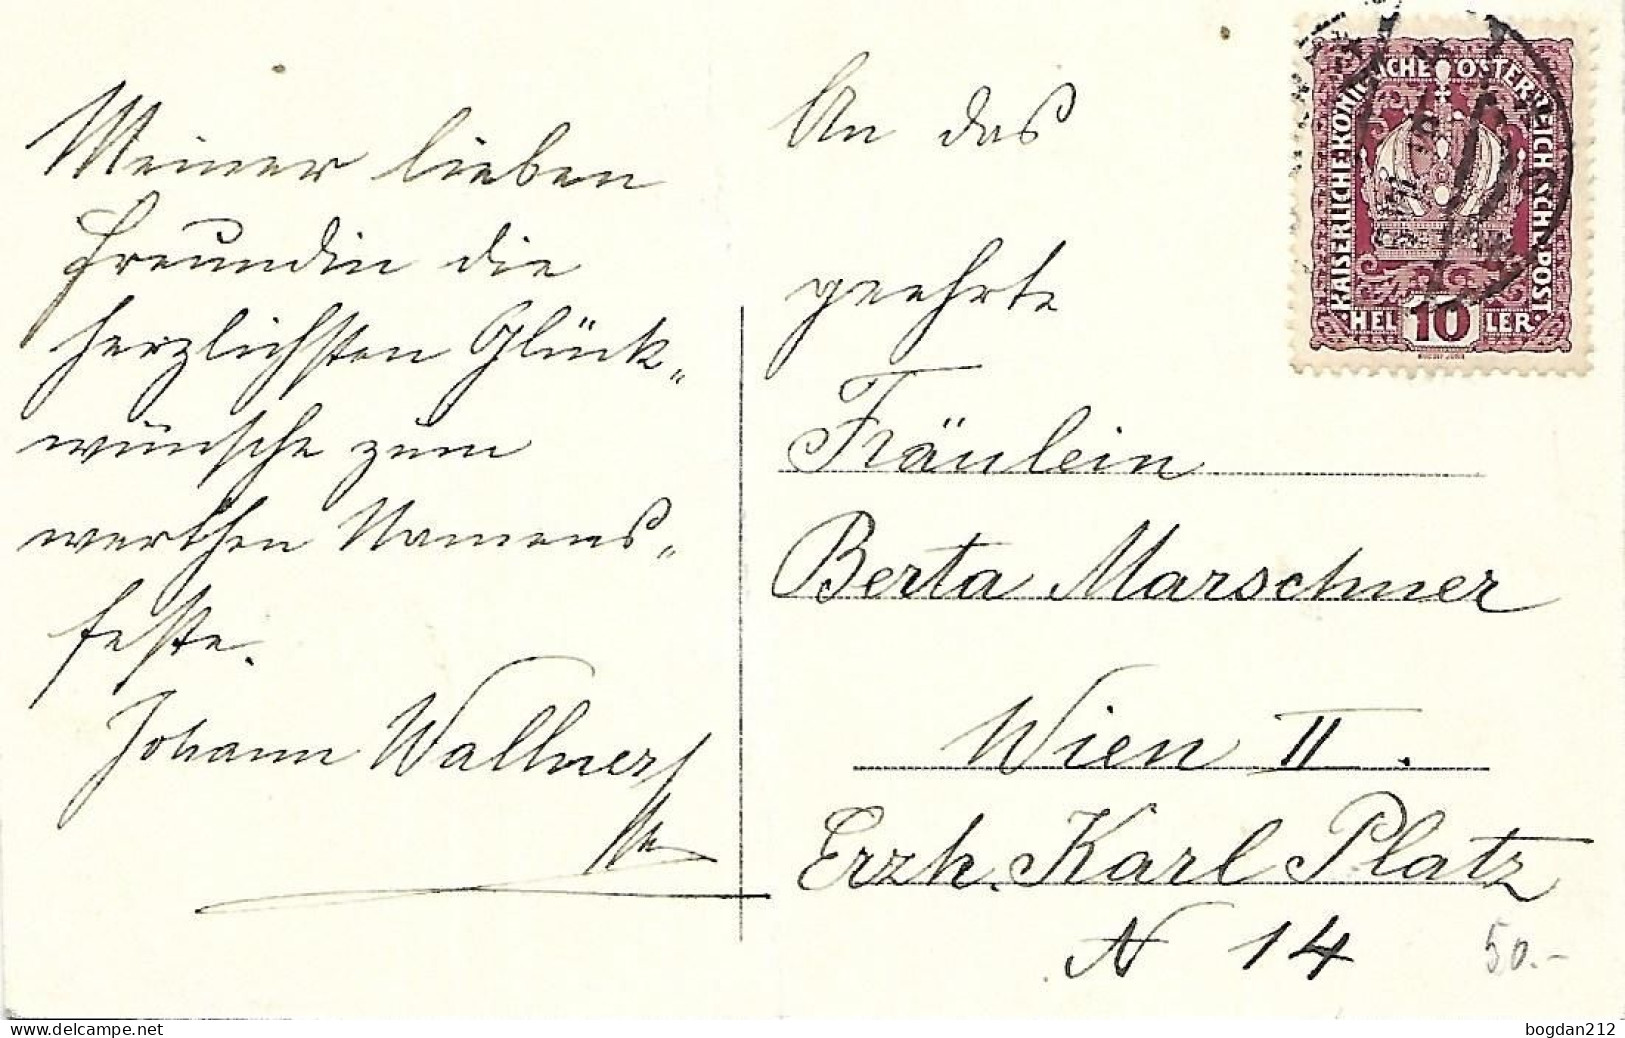 Meiner lieben
Freundin die
herzlichsten Glück„
wünsche zum
werthen Namens„
feste.
Johann Wallner
An das
geehrte
Fräulein
Berta Marschner
Wien II.
Erzh. Karl Platz
N 14
50.-
KAISERLICHE KÖNIGLICHE ÖSTERREICHISCHE POST
HELLER
10
delcampe.net
bogdan212